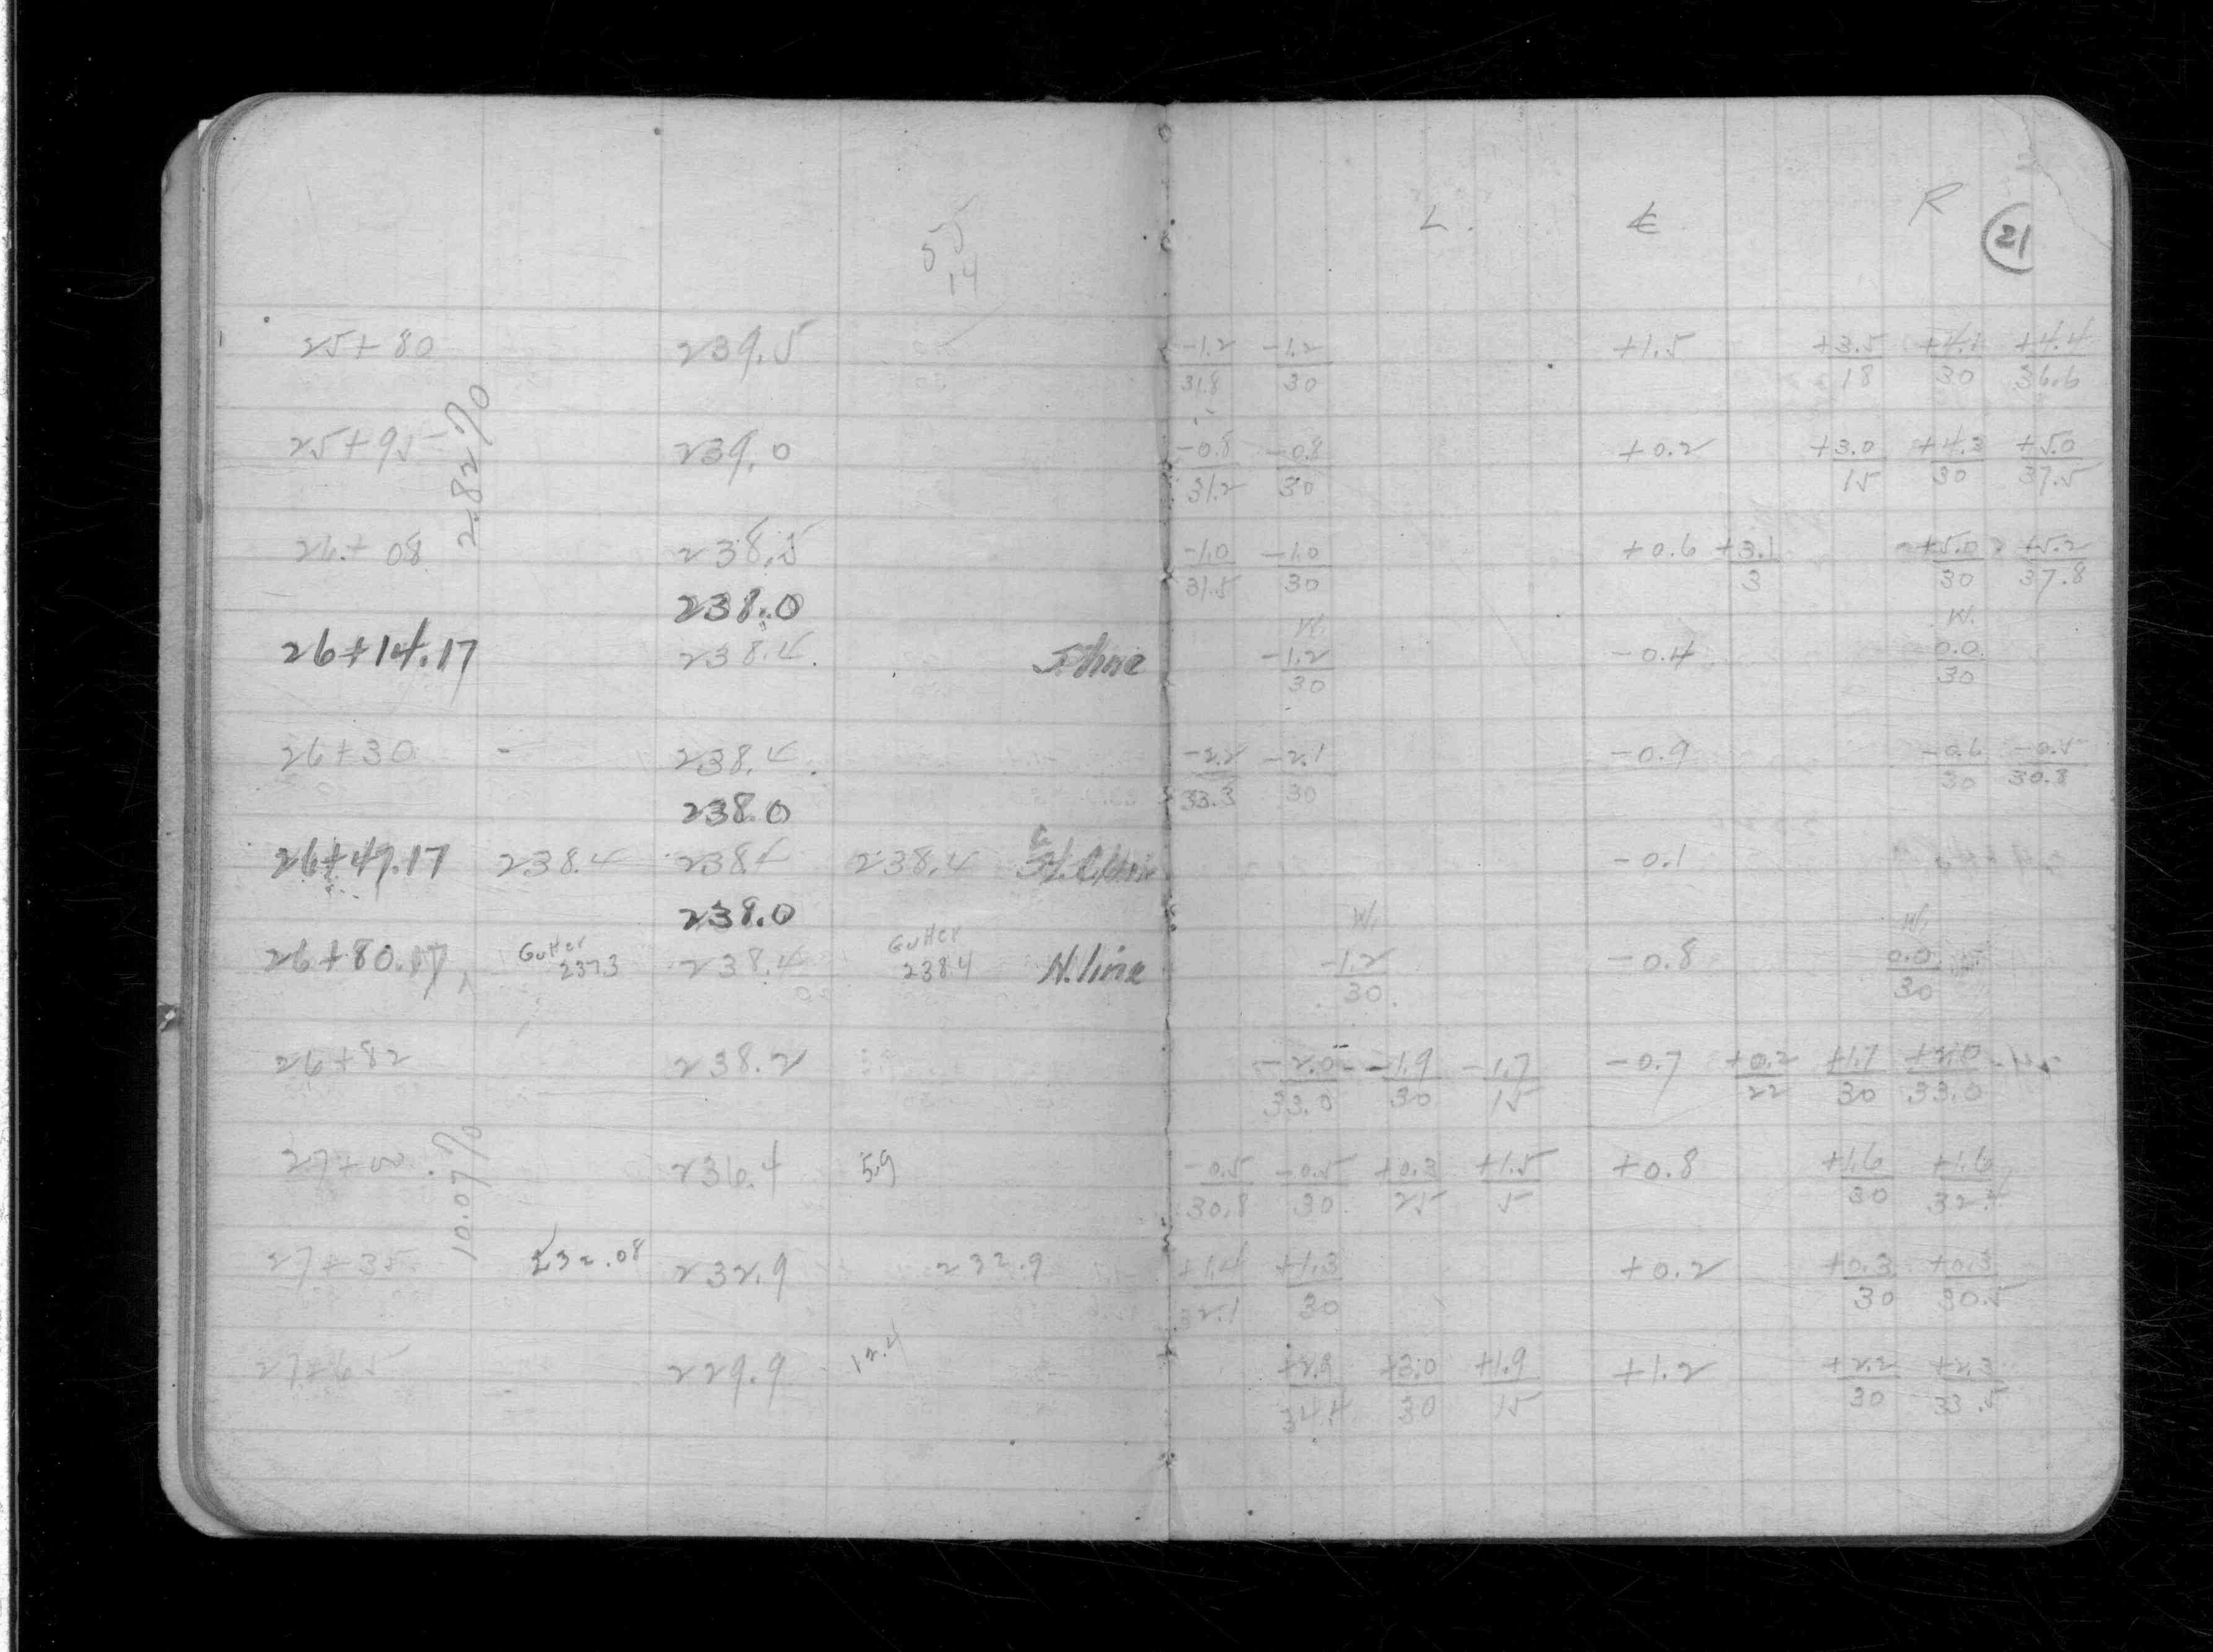 L. ℄ R 21
55
14
25+80 239.5 -1.2/31.8 -1.2/30 +1.5 +3.5/18 +4.1/30 +4.4/36.6
25+95 239.0 -0.8/31.2 -0.8/30 +0.2 +3.0/15 +4.3/30 +5.0/37.5
2.82%
26+08 238.5 -1.0/31.5 -1.0/30 +0.6 +3.1/3 +5.0/30 +5.2/37.8
238.0 W. W.
26+14.17 238.4 line -1.2/30 -0.4 0.0/30
26+30 238.4 -2.2/33.3 -2.1/30 -0.9 -0.6/30 -0.5/30.8
238.0
26+47.17 238.4 238.4 238.4 -0.1
238.0 W. W.
26+80.17 Gutter 237.3 238.4 Gutter 238.4 N. line -1.2/30 -0.8 0.0/30
26+82 238.2 -2.0/33.0 -1.9/30 -1.7/15 -0.7 +0.2/22 +1.7/30 +2.0/33.0
27+00 236.4 5.9 -0.5/30.8 -0.5/30 +0.3/25 +1.5/5 +0.8 +1.6/30 +1.6/32.4
10.07%
27+35 232.08 232.9 232.9 +1.4/32.1 +1.3/30 +0.2 +0.3/30 +0.3/30.5
27+65 229.9 12.4 +2.9/34.4 +3.0/30 +1.9/15 +1.2 +2.2/30 +2.3/33.5